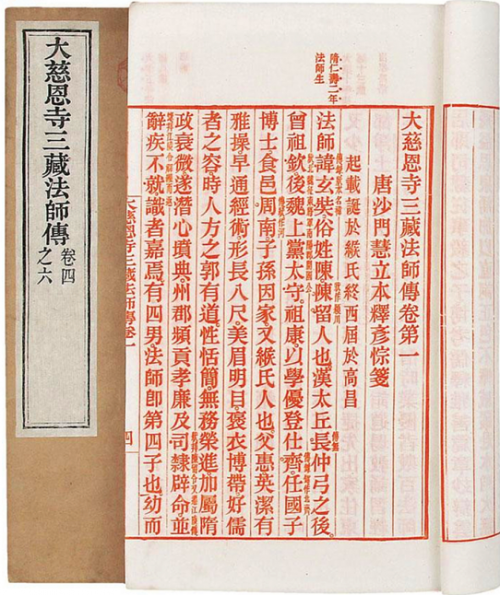 大慈恩寺三藏法師傳
卷四之六
隋仁壽二年
法師生
大慈恩寺三藏法師傳卷第一
唐沙門慧立本釋彥悰箋
起載誕於緱氏終西屆於高昌
法師諱玄奘俗姓陳陳留人也漢太丘長仲弓之後
曾祖欽後魏上黨太守祖康以學優登仕齊任國子
博士食邑周南子孫因家又緱氏人也父惠英潔有
雅操早通經術形長八尺美眉明目褒衣博帶好儒
者之容時人方之郭有道性恬簡無務榮進加屬隋
政衰微遂潛心墳典州郡頻貢孝廉及司隸辟命並
辭疾不就識者嘉焉有四男法師即第四子也幼而
大慈恩寺三藏法師傳卷一